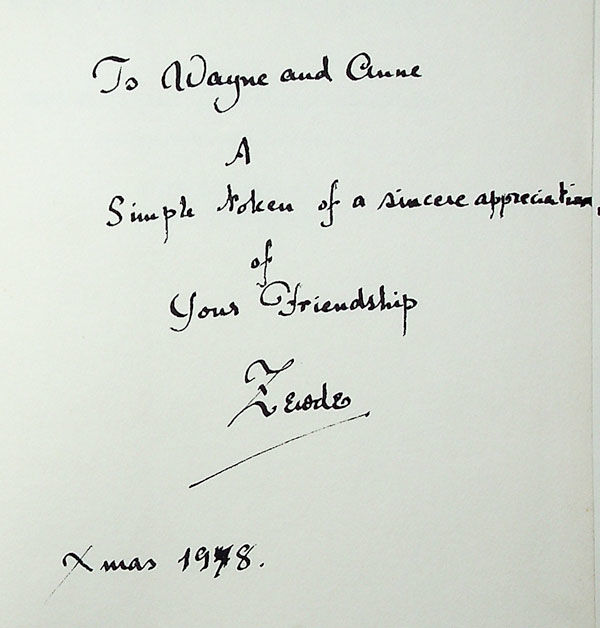 To Wayne and Anne
A
Simple token of a sincere appreciation,
of
Your Friendship
Zewde
Xmas 1978.